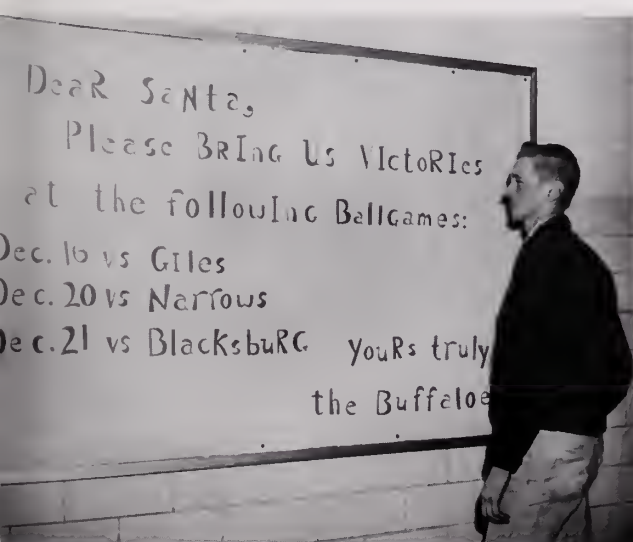 DeaR SaNta,
Please BRInG Us VIctoRIes
at the followInG BallGames:
Dec. 16 vs GIles
Dec. 20 vs Narrows
Dec. 21 vs BlacksbuRG youRs truly
the Buffaloe